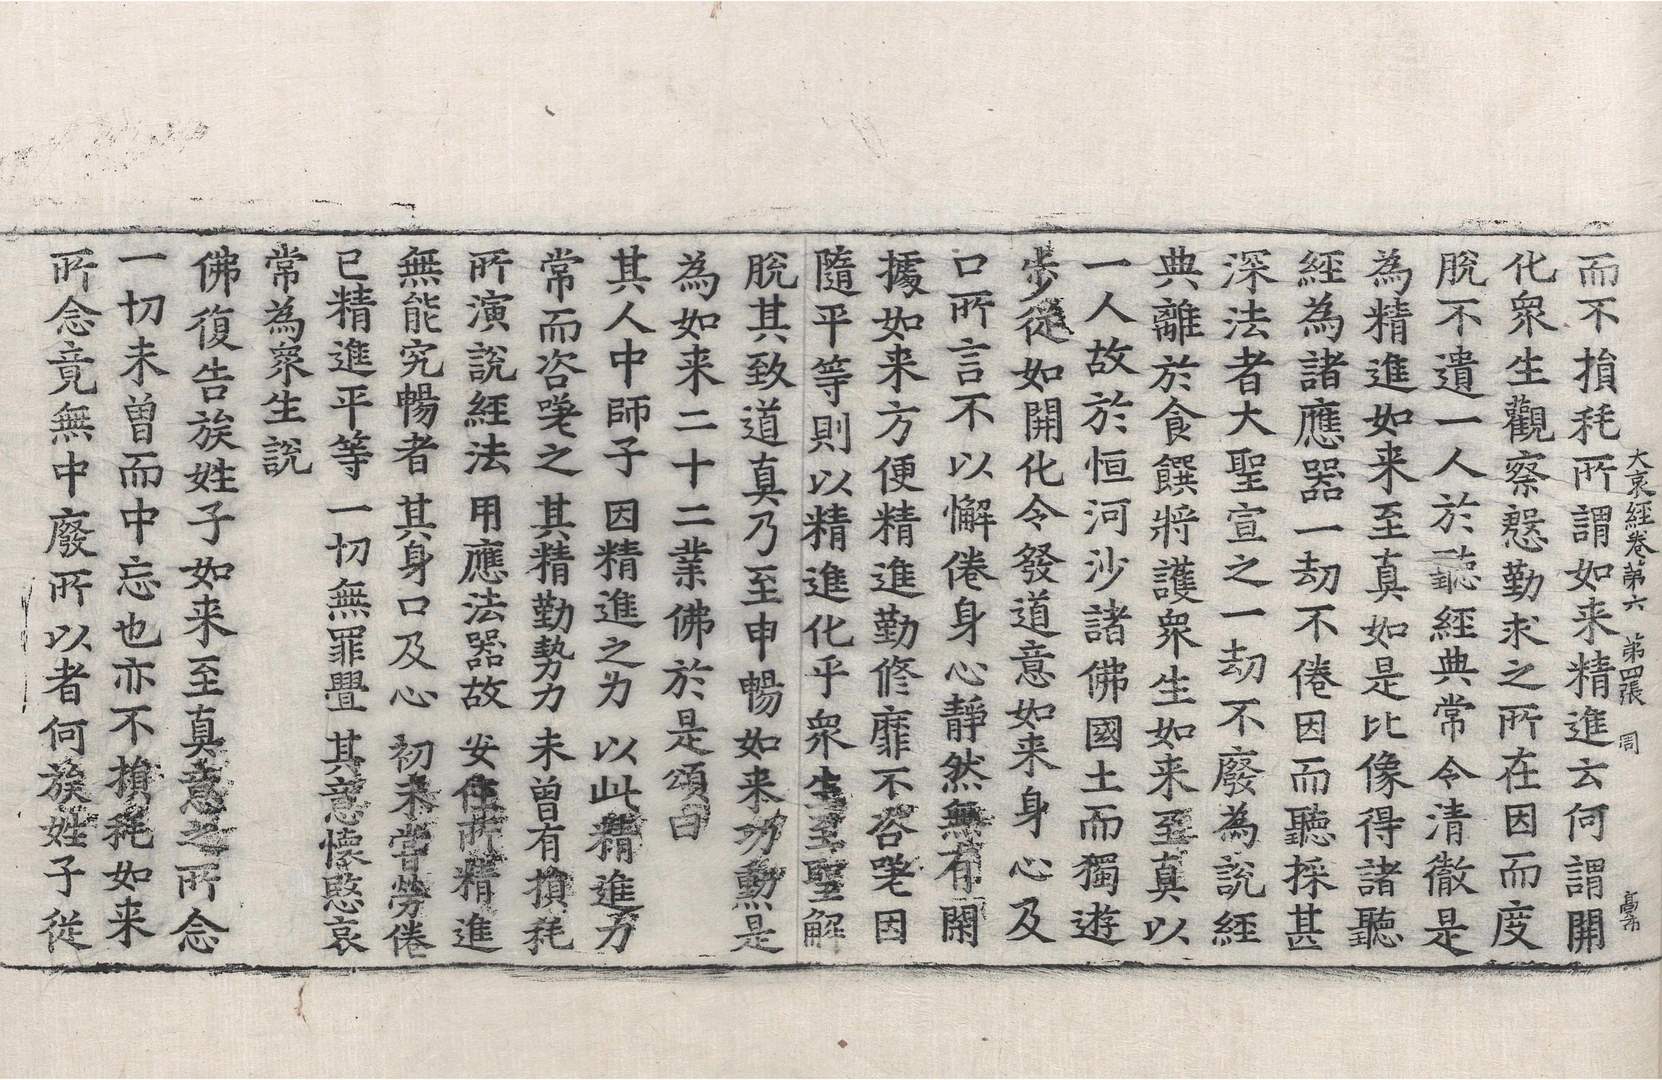 大哀經卷第六　第四張　周
而不損耗所謂如来精進云何謂開
化衆生觀察慇勤求之所在因而度
脫不遺一人於聽經典常令清徹是
為精進如来至真如是比像得諸聽
經為諸應器一劫不倦因而聽採甚
深法者大聖宣之一劫不廢為說經
典離於食饌將護衆生如来至真以
一人故於恒河沙諸佛國土而獨遊
步從如開化令發道意如来身心及
口所言不以懈倦身心靜然無有閑
據如来方便精進勤修靡不咨嗟因
隨平等則以精進化乎衆生至聖解
脫其致道真乃至申暢如来功勲是
為如来二十二業佛於是頌曰
其人中師子　因精進之力　以此精進力
常而咨嗟之　其精勤勢力　未曾有損耗
所演說經法　用應法器故　安住所精進
無能究暢者　其身口及心　初未曾勞倦
已精進平等　一切無罪舋　其意懷愍哀
常為衆生說
佛復告族姓子如来至真意之所念
一切未曾而中忘也亦不損耗如来
所念竟無中廢所以者何族姓子從